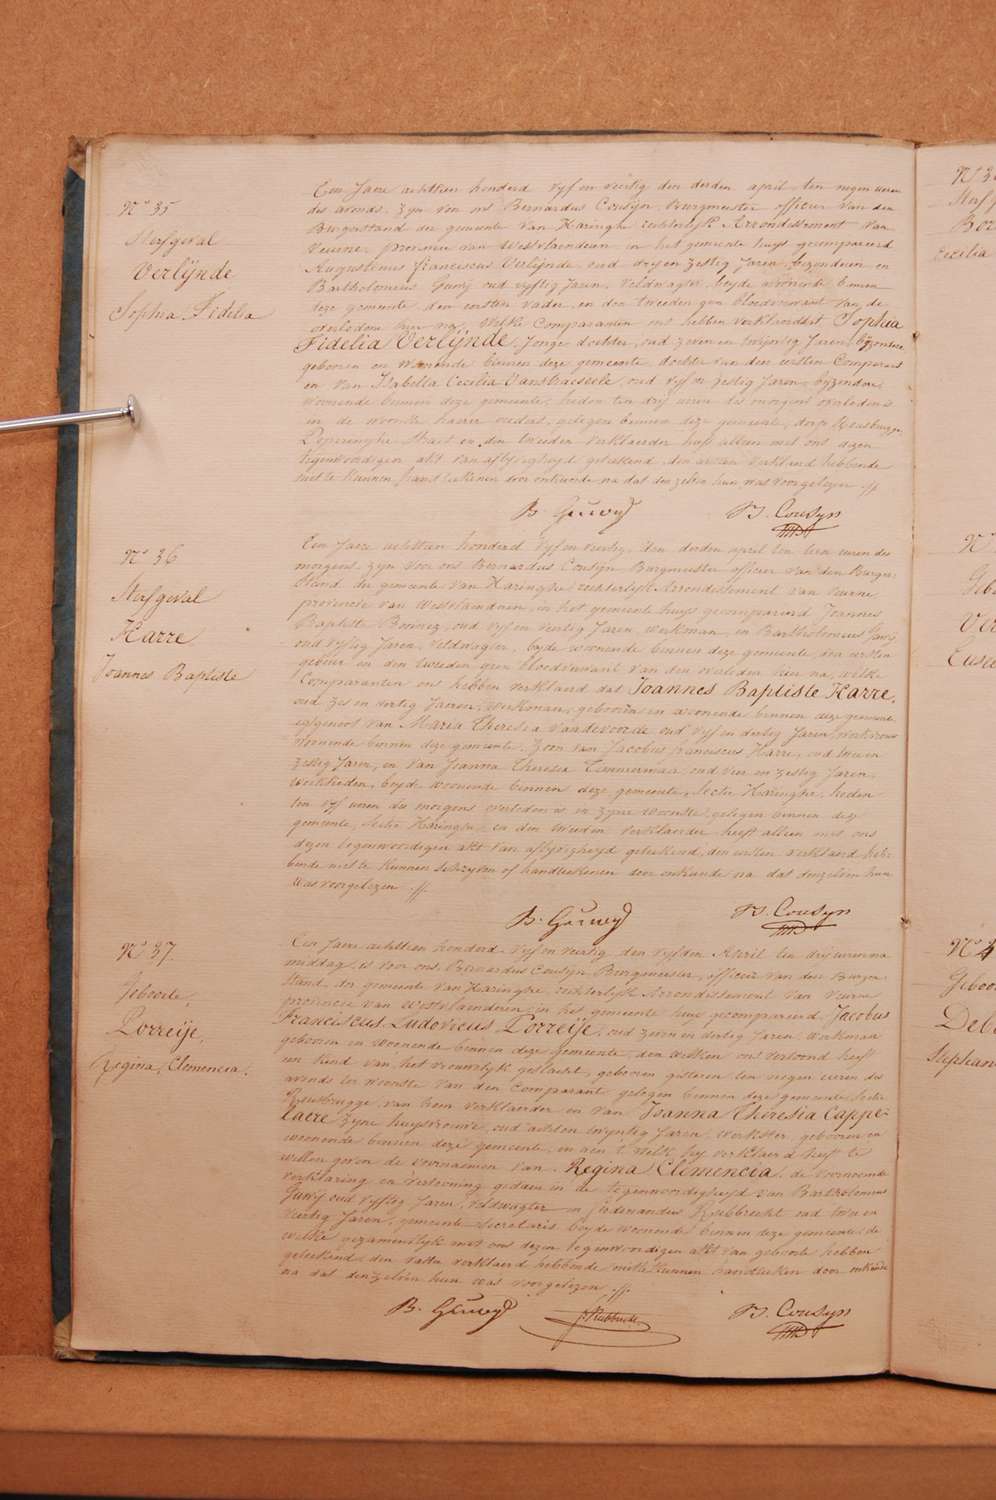 N.o 35
Sterfgeval
Verlÿnde
Sophia Fidelia
Een Jaere achttien honderd vyf en veertig den derden april ten negen uren
des avonds, zyn voor ons Bernardus Cousÿn burgmeester officier van den
Burgerstand der gemeente van Haringhe rechterlyk Arrondissement van
Veurne, provincie van Westvlaenderen in het gemeente huys gecompareerd
Augustinus franciscus Verlÿnde, oud dryen zestig Jaren, byzondere en
Bartholomeus Guwÿ oud vyftig Jaren, veldwagter, beyde woonende binnen
deze gemeente, den eersten vader, en den tweeden geen bloedverwant van de
overledene hier na, welke Comparanten ons hebben verklaerd dat Sophia
Fidelia Verlÿnde, Jonge dochter, oud zeven en twyntig Jaren, byzondere
geboren en woonende binnen deze gemeente, dochter van den eersten Comparant
en van Isabella Cecilia Vanstraeseele, oud vyf en zestig Jaren, byzondere
woonende binnen deze gemeente, heden ten dry uren des morgens overleden is
in de woonste haerer ouders, gelegen binnen deze gemeente, dorp Rousbrugge
Poperinghe straet en den tweeden verklaerder heeft alleen met ons dezen
tegenwoordigen akt van aflyvigheyd geteekend, den eersten verklaerd hebbende
niet te kunnen handteekenen door onkunde na dat denzelven hun was voorgelezen ./.
B. Guwÿ B. Cousyn
N.o 36
Sterfgeval
Harre
Joannes Baptiste
Een Jaere achttien honderd vyf en veertig, den derden april ten tien uren des
morgens, zyn voor ons Bernardus Cousÿn Burgmeester officier van den Burger-
stand der gemeente van Haringhe rechterlyk Arrondissement van Veurne
provincie van Westvlaenderen, in het gemeente huys gecompareerd Joannes
Baptiste oud vyf en veertig Jaren, werkman, en Bartholomeus Guwÿ
oud vyftig Jaren, veldwagter, beyde woonende binnen deze gemeente, den eersten
gebuer en den tweeden geen bloedverwant van den overleden hier na, welke
Comparanten ons hebben verklaerd dat Joannes Baptiste Harre,
oud zes en veertig Jaren, werkman, geboren en woonende binnen deze gemeente
egtgenoot van Maria Theresia Vandevoorde oud vyf en dertig Jaren, werkvrouw
woonende binnen deze gemeente, Zoon van Jacobus franciscus Harre, oud twee en
zestig Jaren, en van Joanna Theresia Timmerman oud vier en zestig Jaren,
werklieden, beyde woonende binnen deze gemeente, sectie Haringhe, heden
ten vyf uren des morgens overleden is in zyne woonste gelegen binnen deze
gemeente, sectie Haringhe, en den tweeden verklaerder heeft alleen met ons
dezen tegenwoordigen akt van aflyvigheyd geteekend, den eersten verklaerd heb-
bende niet te kunnen schryven of handteekenen door onkunde na dat denzelven hun
was voorgelezen ./.
B. Guwÿ B. Cousyn
N.o 37.
Geboorte,
Porreÿe,
Regina Clemencia.
Een Jaere achttien honderd vyf en veertig den vyfden April ten dry uren na
middag, is voor ons Bernardus Cousyn Burgmeester, officier van den Burger
stand der gemeente van Haringhe, rechterlyk Arrondissement van Veurne
provincie van Westvlaenderen, in het gemeente huys gecompareerd, Jacobus
Franciscus Ludovicus Porreÿe, oud zeven en dertig Jaren, werkman
geboren en woonende binnen deze gemeente, den welken ons vertoond heeft
een kind van het vrouwelyk geslacht, geboren gisteren ten negen uren des
avonds ter woonste van den comparant gelegen binnen deze gemeente sectie
Rousbrugge, van hem verklaerder en van Joanna Theresia Cappe-
laere zyne huysvrouwe, oud acht en twyntig Jaren, werkster, geboren en
woonende binnen deze gemeente, en aen 't welk hy verklaerd heeft te
willen geven de voornaemen van Regina Clemencia, de voornoemde
verklaring en vertooning gedaen in de tegenwoordigheyd van Bartholomeus
Guwÿ oud vyftig Jaren, veldwagter en ferdenandus Rubbrecht oud twee en
veertig Jaren, gemeente secretaris, beyde woonende binnen deze gemeente, de
welke gezamentlyk met ons dezen tegenwoordigen akt van geboorte hebben
geteekend, den vader verklaerd hebbende niet te kunnen handteeken door onkunde
na dat denzelven hun was voorgelezen ./.
B. Guwÿ Rubbrecht B. Cousyn
N.o 3
Sterfg
Cecilia
N.o
Gebo
Ver
N.o 4
Geboo
Stephan